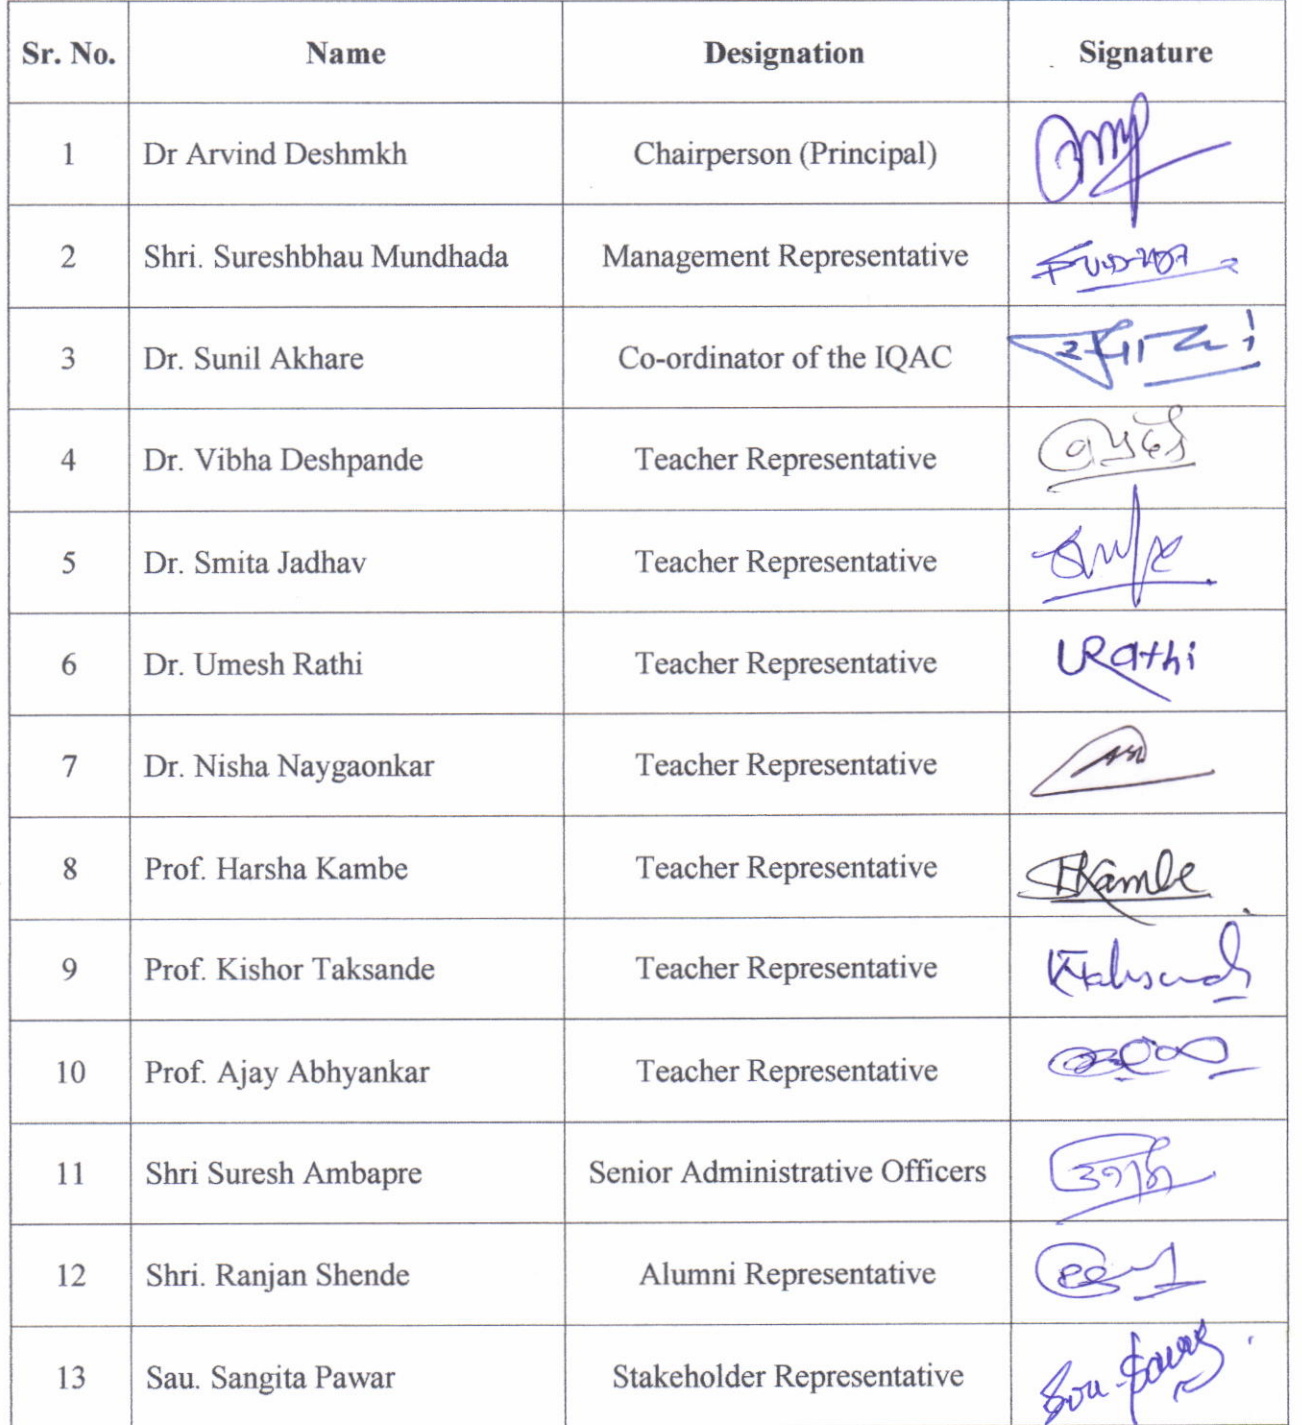 Sr. No. Name Designation Signature
1 Dr Arvind Deshmkh Chairperson (Principal)
2 Shri. Sureshbhau Mundhada Management Representative
3 Dr. Sunil Akhare Co-ordinator of the IQAC
4 Dr. Vibha Deshpande Teacher Representative
5 Dr. Smita Jadhav Teacher Representative
6 Dr. Umesh Rathi Teacher Representative URathi
7 Dr. Nisha Naygaonkar Teacher Representative
8 Prof. Harsha Kambe Teacher Representative HKambe
9 Prof. Kishor Taksande Teacher Representative
10 Prof. Ajay Abhyankar Teacher Representative
11 Shri Suresh Ambapre Senior Administrative Officers
12 Shri. Ranjan Shende Alumni Representative
13 Sau. Sangita Pawar Stakeholder Representative